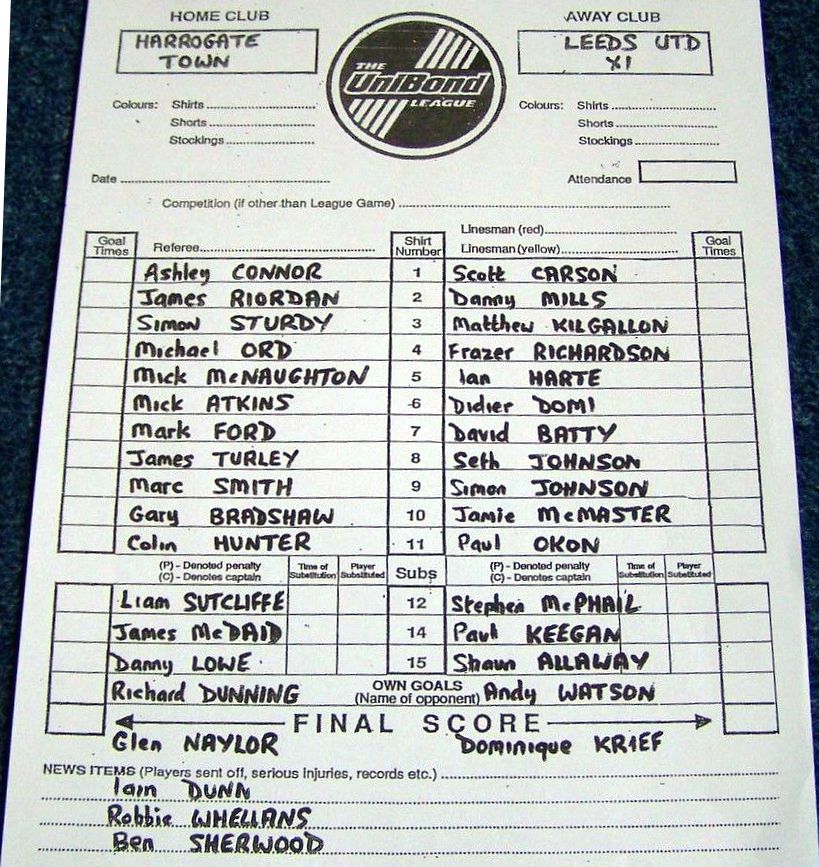 HOME CLUB AWAY CLUB
HARROGATE TOWN
THE UniBond LEAGUE
LEEDS UTD XI
Colours: Shirts Colours: Shirts
Shorts Shorts
Stockings Stockings
Date Attendance
Competition (if other than League Game)
Linesman (red)
Goal Times Referee Shirt Number Linesman (yellow) Goal Times
Ashley CONNOR 1 Scott CARSON
James RIORDAN 2 Danny MILLS
Simon STURDY 3 Matthew KILGALLON
Michael ORD 4 Frazer RICHARDSON
Mick McNAUGHTON 5 Ian HARTE
Mick ATKINS 6 Didier DOMI
Mark FORD 7 David BATTY
James TURLEY 8 Seth JOHNSON
Marc SMITH 9 Simon JOHNSON
Gary BRADSHAW 10 Jamie McMASTER
Colin HUNTER 11 Paul OKON
(P) - Denoted penalty Time of Substitution Player Substituted Subs (P) - Denoted penalty Time of Substitution Player Substituted
(C) - Denotes captain (C) - Denotes captain
Liam SUTCLIFFE 12 Stephen McPHAIL
James McDAID 14 Paul KEEGAN
Danny LOWE 15 Shawn ALLAWAY
Richard DUNNING OWN GOALS (Name of opponent) Andy WATSON
FINAL SCORE
Glen NAYLOR Dominique KRIEF
NEWS ITEMS (Players sent off, serious injuries, records etc.)
Iain DUNN
Robbie WHELLANS
Ben SHERWOOD